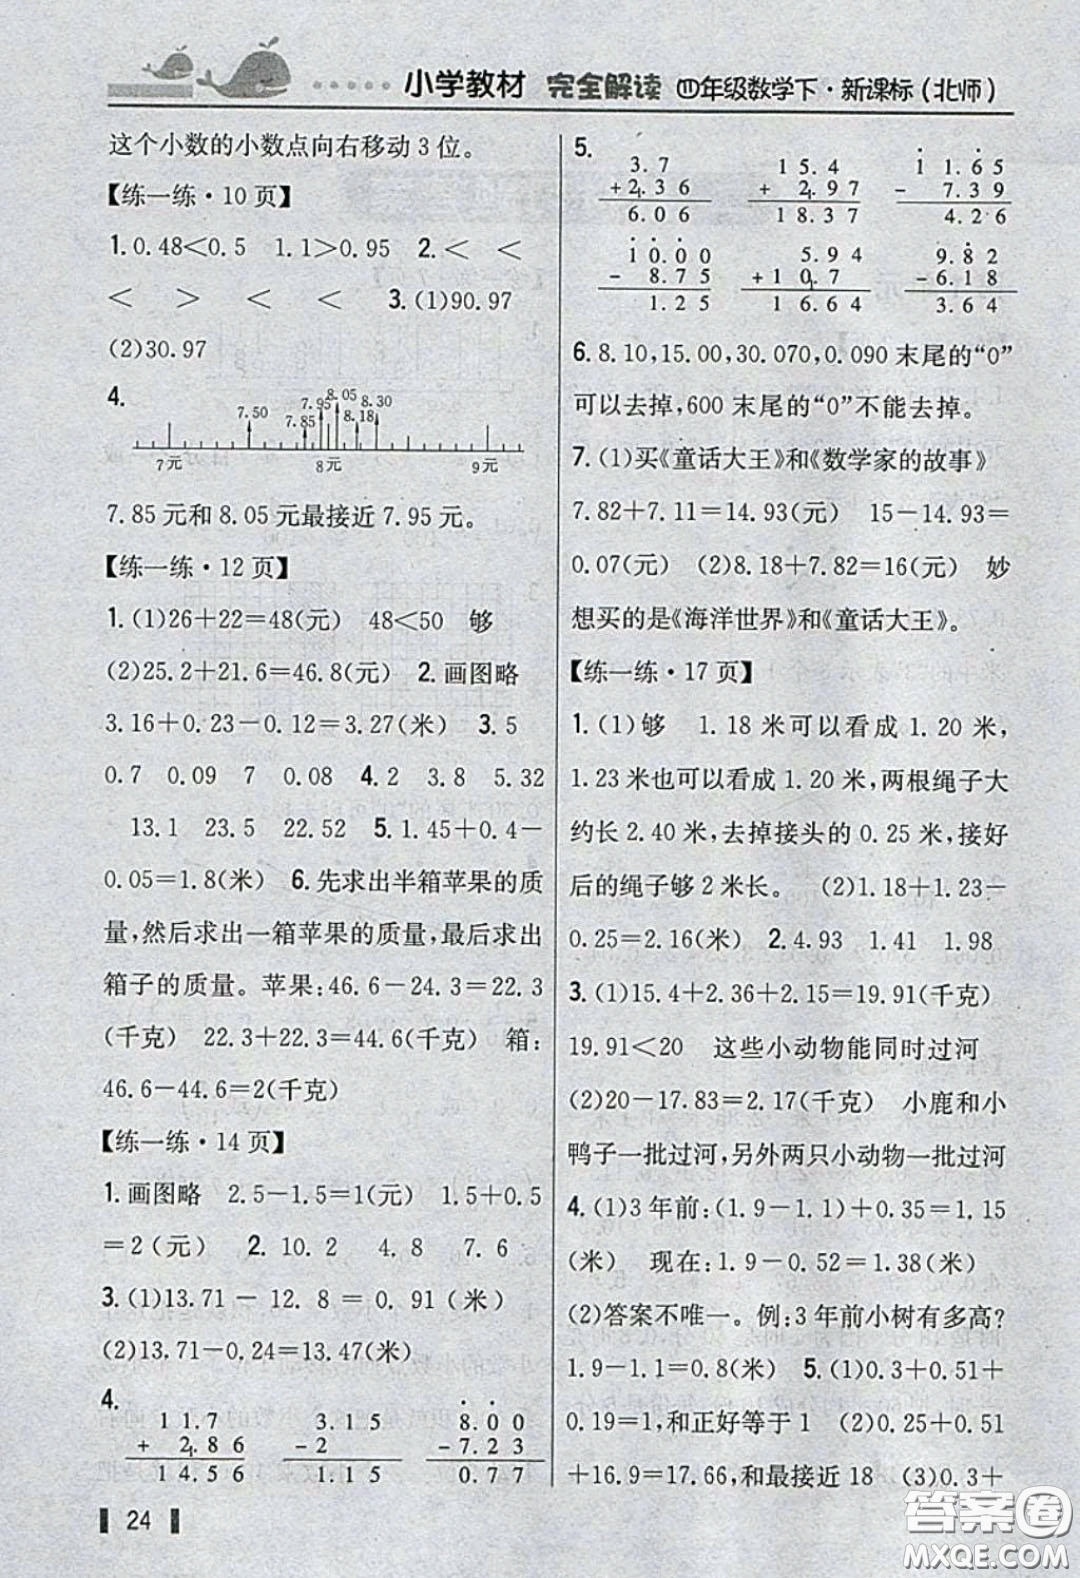 小学教材 完全解读 四年级数学下·新课标(北师)
这个小数的小数点向右移动3位。
【练一练·10页】
1.0.48<0.5 1.1>0.95 2.< < <
< > < < 3.(1)90.97
(2)30.97
4.
7.50 7.85 7.95 8.05 8.18 8.30
7元 8元 9元
7.85元和8.05元最接近7.95元。
【练一练·12页】
1.(1)26+22=48(元) 48<50 够
(2)25.2+21.6=46.8(元) 2.画图略
3.16+0.23-0.12=3.27(米) 3.5
0.7 0.09 7 0.08 4.2 3.8 5.32
13.1 23.5 22.52 5.1.45+0.4-
0.05=1.8(米) 6.先求出半箱苹果的质
量,然后求出一箱苹果的质量,最后求出
箱子的质量。苹果:46.6-24.3=22.3
(千克) 22.3+22.3=44.6(千克) 箱:
46.6-44.6=2(千克)
【练一练·14页】
1.画图略 2.5-1.5=1(元) 1.5+0.5
=2(元) 2.10.2 4.8 7.6
3.(1)13.71-12.8=0.91(米)
(2)13.71-0.24=13.47(米)
4.
11.7 3.15 8.00
+ 2.86 -2 -7.23
14.56 1.15 0.77
24
5.
3.7 15.4 11.65
+2.36 + 2.97 - 7.39
6.06 18.37 4.26
10.00 5.94 9.82
- 8.75 +10.7 -6.18
1.25 16.64 3.64
6.8.10,15.00,30.070,0.090末尾的“0”
可以去掉,600末尾的“0”不能去掉。
7.(1)买《童话大王》和《数学家的故事》
7.82+7.11=14.93(元) 15-14.93=
0.07(元) (2)8.18+7.82=16(元) 妙
想买的是《海洋世界》和《童话大王》。
【练一练·17页】
1.(1)够 1.18米可以看成1.20米,
1.23米也可以看成1.20米,两根绳子大
约长2.40米,去掉接头的0.25米,接好
后的绳子够2米长。 (2)1.18+1.23-
0.25=2.16(米) 2.4.93 1.41 1.98
3.(1)15.4+2.36+2.15=19.91(千克)
19.91<20 这些小动物能同时过河
(2)20-17.83=2.17(千克) 小鹿和小
鸭子一批过河,另外两只小动物一批过河
4.(1)3年前:(1.9-1.1)+0.35=1.15
(米) 现在:1.9-0.52=1.38(米)
(2)答案不唯一。例:3年前小树有多高?
1.9-1.1=0.8(米) 5.(1)0.3+0.51+
0.19=1,和正好等于1 (2)0.25+0.51
+16.9=17.66,和最接近18 (3)0.3+
答案圈
MXQE.COM